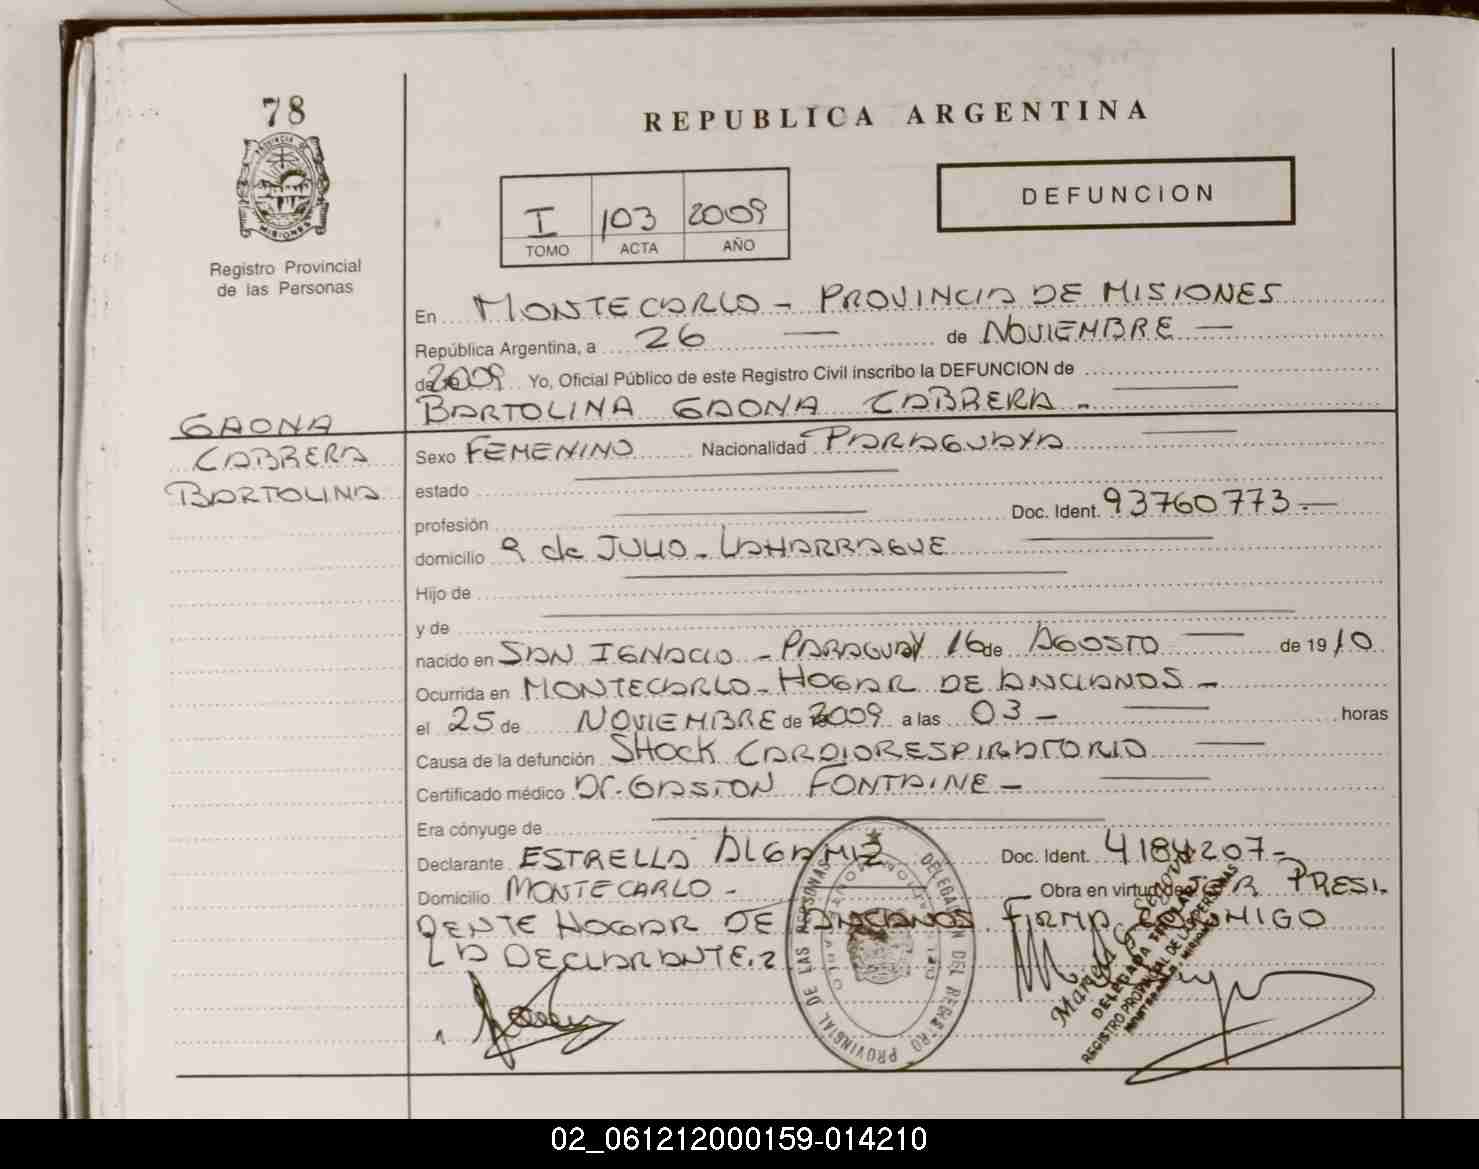 78
PROVINCIA DE
MISIONES
Registro Provincial
de las Personas
REPUBLICA ARGENTINA
I 103 2009
TOMO ACTA AÑO
DEFUNCION
En MONTECARLO - PROVINCIA DE MISIONES
República Argentina, a 26 de NOVIEMBRE
de 2009 Yo, Oficial Público de este Registro Civil inscribo la DEFUNCION de
BARTOLINA GAONA CABRERA -
GAONA
CABRERA
BARTOLINA
Sexo FEMENINO Nacionalidad PARAGUAYA
estado
profesión Doc. Ident. 93760773 -
domicilio 9 de JULIO - LAHARRAGUE
Hijo de
y de
nacido en SAN IGNACIO - PARAGUAY 16 de AGOSTO de 1910
Ocurrida en MONTECARLO - HOGAR DE ANCIANOS -
el 25 de NOVIEMBRE de 2009 a las 03 - horas
Causa de la defunción SHOCK CARDIORESPIRATORIO
Certificado médico Dr. GASTON FONTAINE -
Era cónyuge de
Declarante ESTRELLA Doc. Ident. 4184207 -
Domicilio MONTECARLO - Obra en virtud de SER PRESI.
DENTE HOGAR DE ANCIANOS FIRMA CONMIGO
LA DECLARANTE.
DELEGACION DEL REGISTRO PROVINCIAL DE LAS PERSONAS
DELEGADA TITULAR
REGISTRO PROVINCIAL DE LAS PERSONAS
02_061212000159-014210